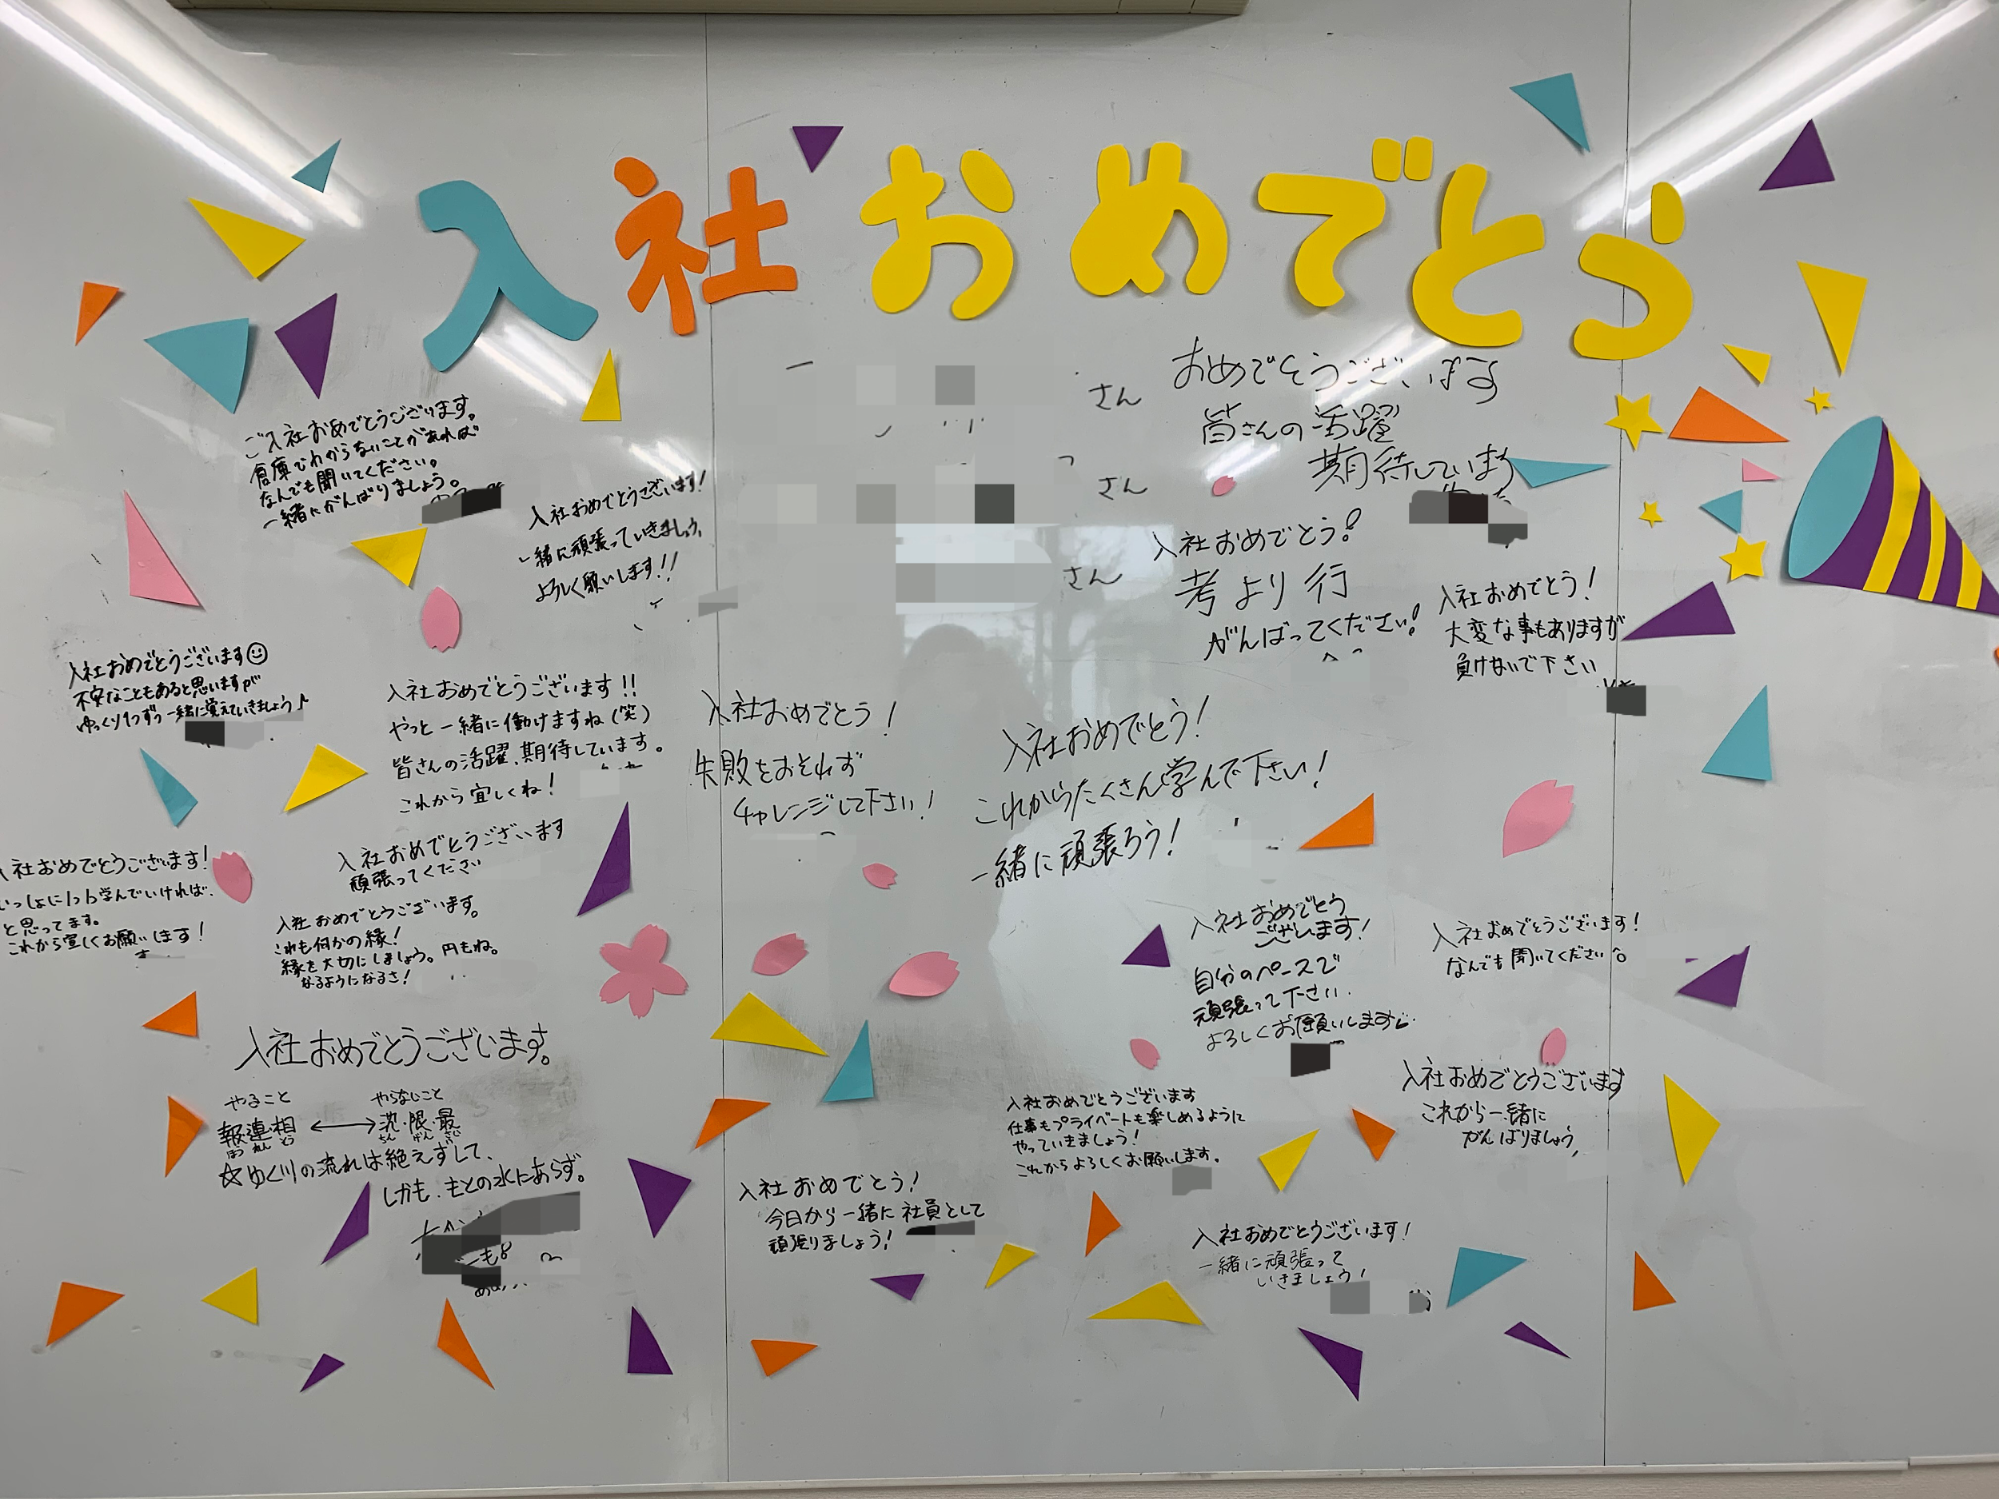 入社おめでとう
さん
さん
さん
おめでとうございます
皆さんの活躍
期待しています
ご入社おめでとうございます。
倉庫でわからないことがあれば
なんでも聞いてください。
一緒にがんばりましょう。
入社おめでとうございます!
一緒に頑張っていきましょう。
よろしく願いします!!
入社おめでとう!
考より行
がんばってください!
入社おめでとう!
大変な事もありますが
負けないで下さい
入社おめでとうございます☺
不安なこともあると思いますが
ゆっくり1つずつ一緒に覚えていきましょう♪
入社おめでとうございます!!
やっと一緒に働けますね(笑)
皆さんの活躍、期待しています。
これから宜しくね!
入社おめでとう!
失敗をおそれず
チャレンジして下さい!
入社おめでとう!
これからたくさん学んで下さい!
一緒に頑張ろう!
入社おめでとうございます!
学んでいければ、
と思ってます。
これから宜しくお願いします!
入社おめでとうございます
頑張ってくださ
入社おめでとうございます。
これも何かの縁!
縁を大切にしましょう。円もね。
なるようになるさ!
入社おめでとう
ございます!
自分のペースで
頑張って下さい.
よろしくお願いします
入社おめでとうございます!
なんでも聞いてください
入社おめでとうございます。
やること
やらなしこと
報連相 ⟷ 沈・限・最
ほう れん そう ちん げん さい
☆ゆく川の流れは絶えずして、
しかも、もとの水にあらず。
入社おめでとうございます
仕事もプライベートも楽しめるように
やっていきましょう!
これからよろしくお願いします。
入社おめでとうございます
これから一緒に
がんばりましょう。
入社おめでとう!
今日から一緒に社員として
頑張りましょう!
入社おめでとうございます!
一緒に頑張って
いきましょう!